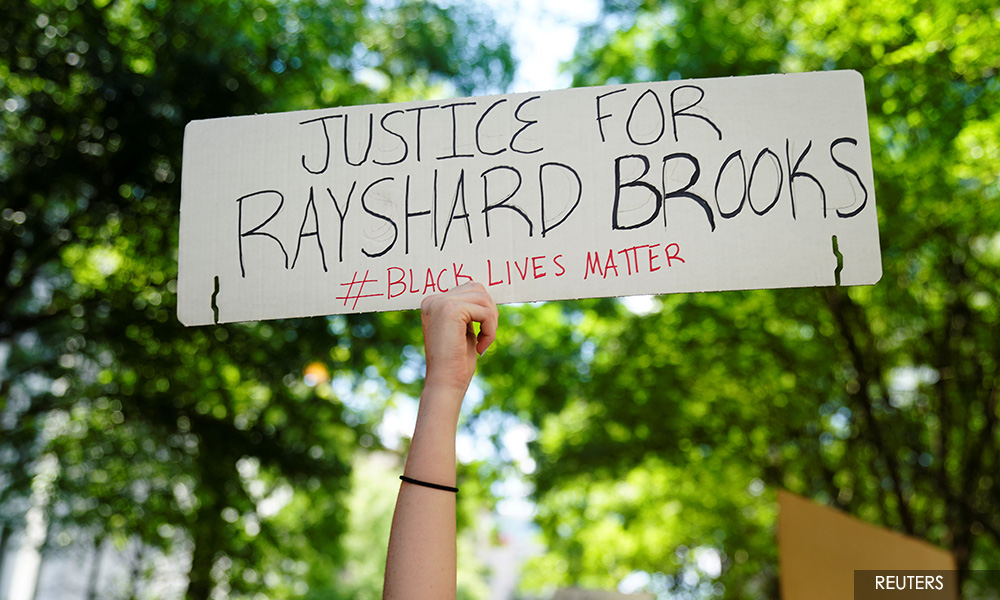 JUSTICE FOR
RAYSHARD BROOKS
#BLACK LIVES MATTER
REUTERS